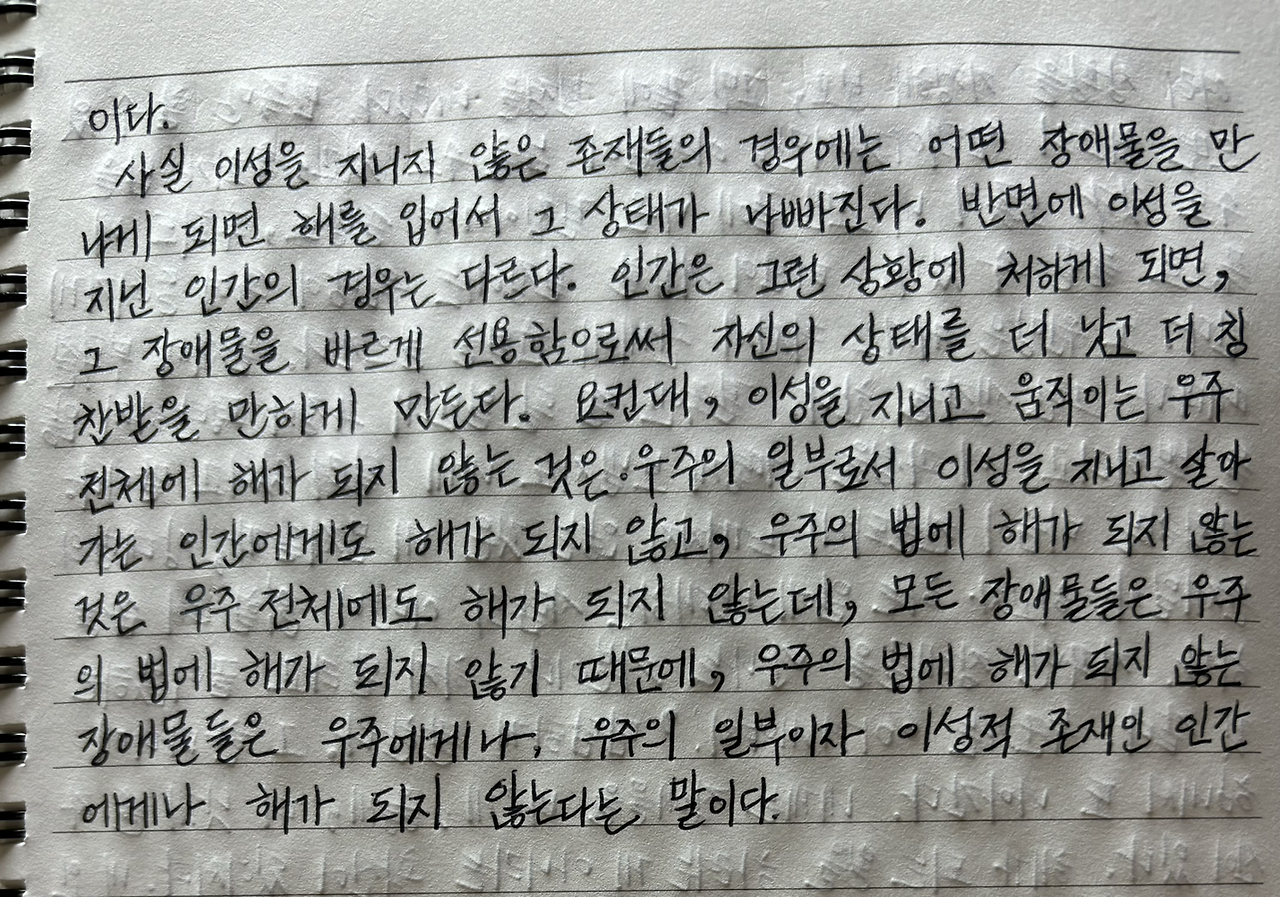 이다.
사실 이성을 지니지 않은 존재들의 경우에는 어떤 장애물을 만
나게 되면 해를 입어서 그 상태가 나빠진다. 반면에 이성을
지닌 인간의 경우는 다르다. 인간은 그런 상황에 처하게 되면,
그 장애물을 바르게 선용함으로써 자신의 상태를 더 낫고 더 칭
찬받을 만하게 만든다. 요컨대, 이성을 지니고 움직이는 우주
전체에 해가 되지 않는 것은 우주의 일부로서 이성을 지니고 살아
가는 인간에게도 해가 되지 않고, 우주의 법에 해가 되지 않는
것은 우주 전체에도 해가 되지 않는데, 모든 장애물들은 우주
의 법에 해가 되지 않기 때문에, 우주의 법에 해가 되지 않는
장애물들은 우주에게나, 우주의 일부이자 이성적 존재인 인간
에게나 해가 되지 않는다는 말이다.